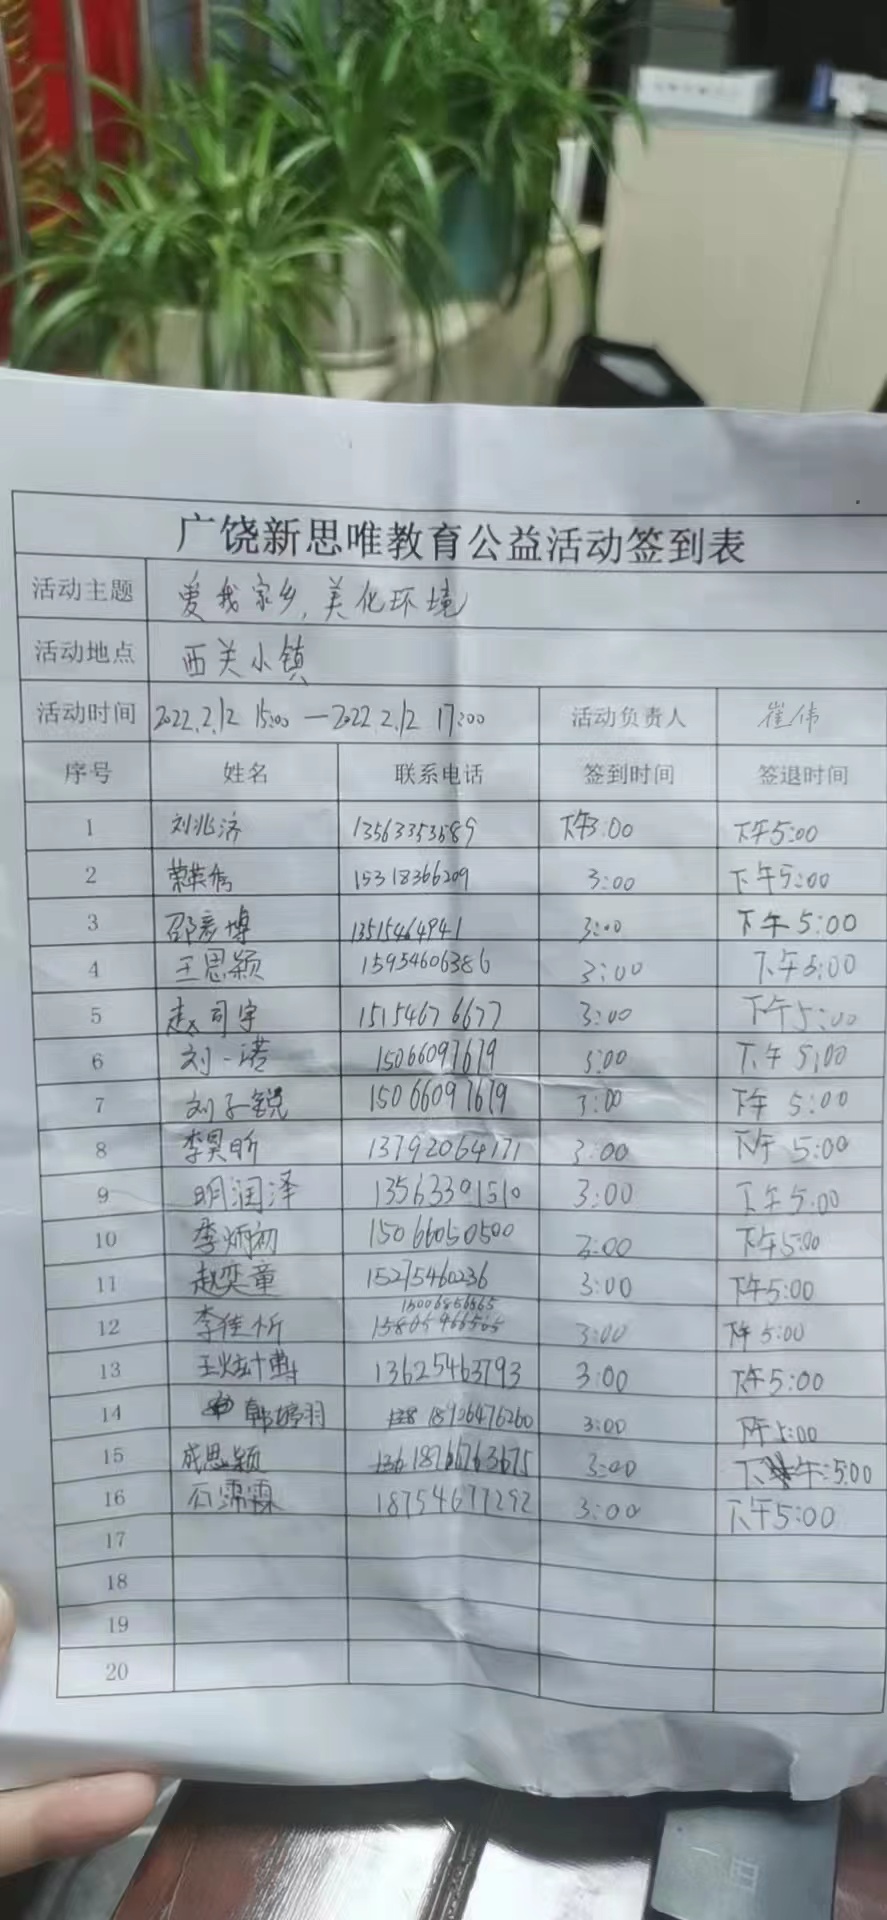 广饶新思唯教育公益活动签到表
活动主题 爱我家乡,美化环境
活动地点 西关小镇
活动时间 2022.2.12 15:00 — 2022.2.12 17:00 活动负责人 崔伟
序号 姓名 联系电话 签到时间 签退时间
1 刘兆济 13563353589 下午3:00 下午5:00
2 15318366209 3:00 下午5:00
3 邵彦博 13515464941 3:00 下午5:00
4 王思颖 15954606386 3:00 下午5:00
5 赵司宇 15154676677 3:00 下午5:00
6 刘一诺 15066097679 3:00 下午5:00
7 刘子锐 15066097679 3:00 下午5:00
8 李昊昕 13792064171 3:00 下午5:00
9 明润泽 13563391510 3:00 下午5:00
10 李炳初 15066050500 3:00 下午5:00
11 赵奕童 15275460236 3:00 下午5:00
12 李佳忻 3:00 下午5:00
13 13625463793 3:00 下午5:00
14 韩婷羽 18926476260 3:00 下午5:00
15 成思颖 18766763675 3:00 下午5:00
16 石霈霖 18754677292 3:00 下午5:00
17
18
19
20